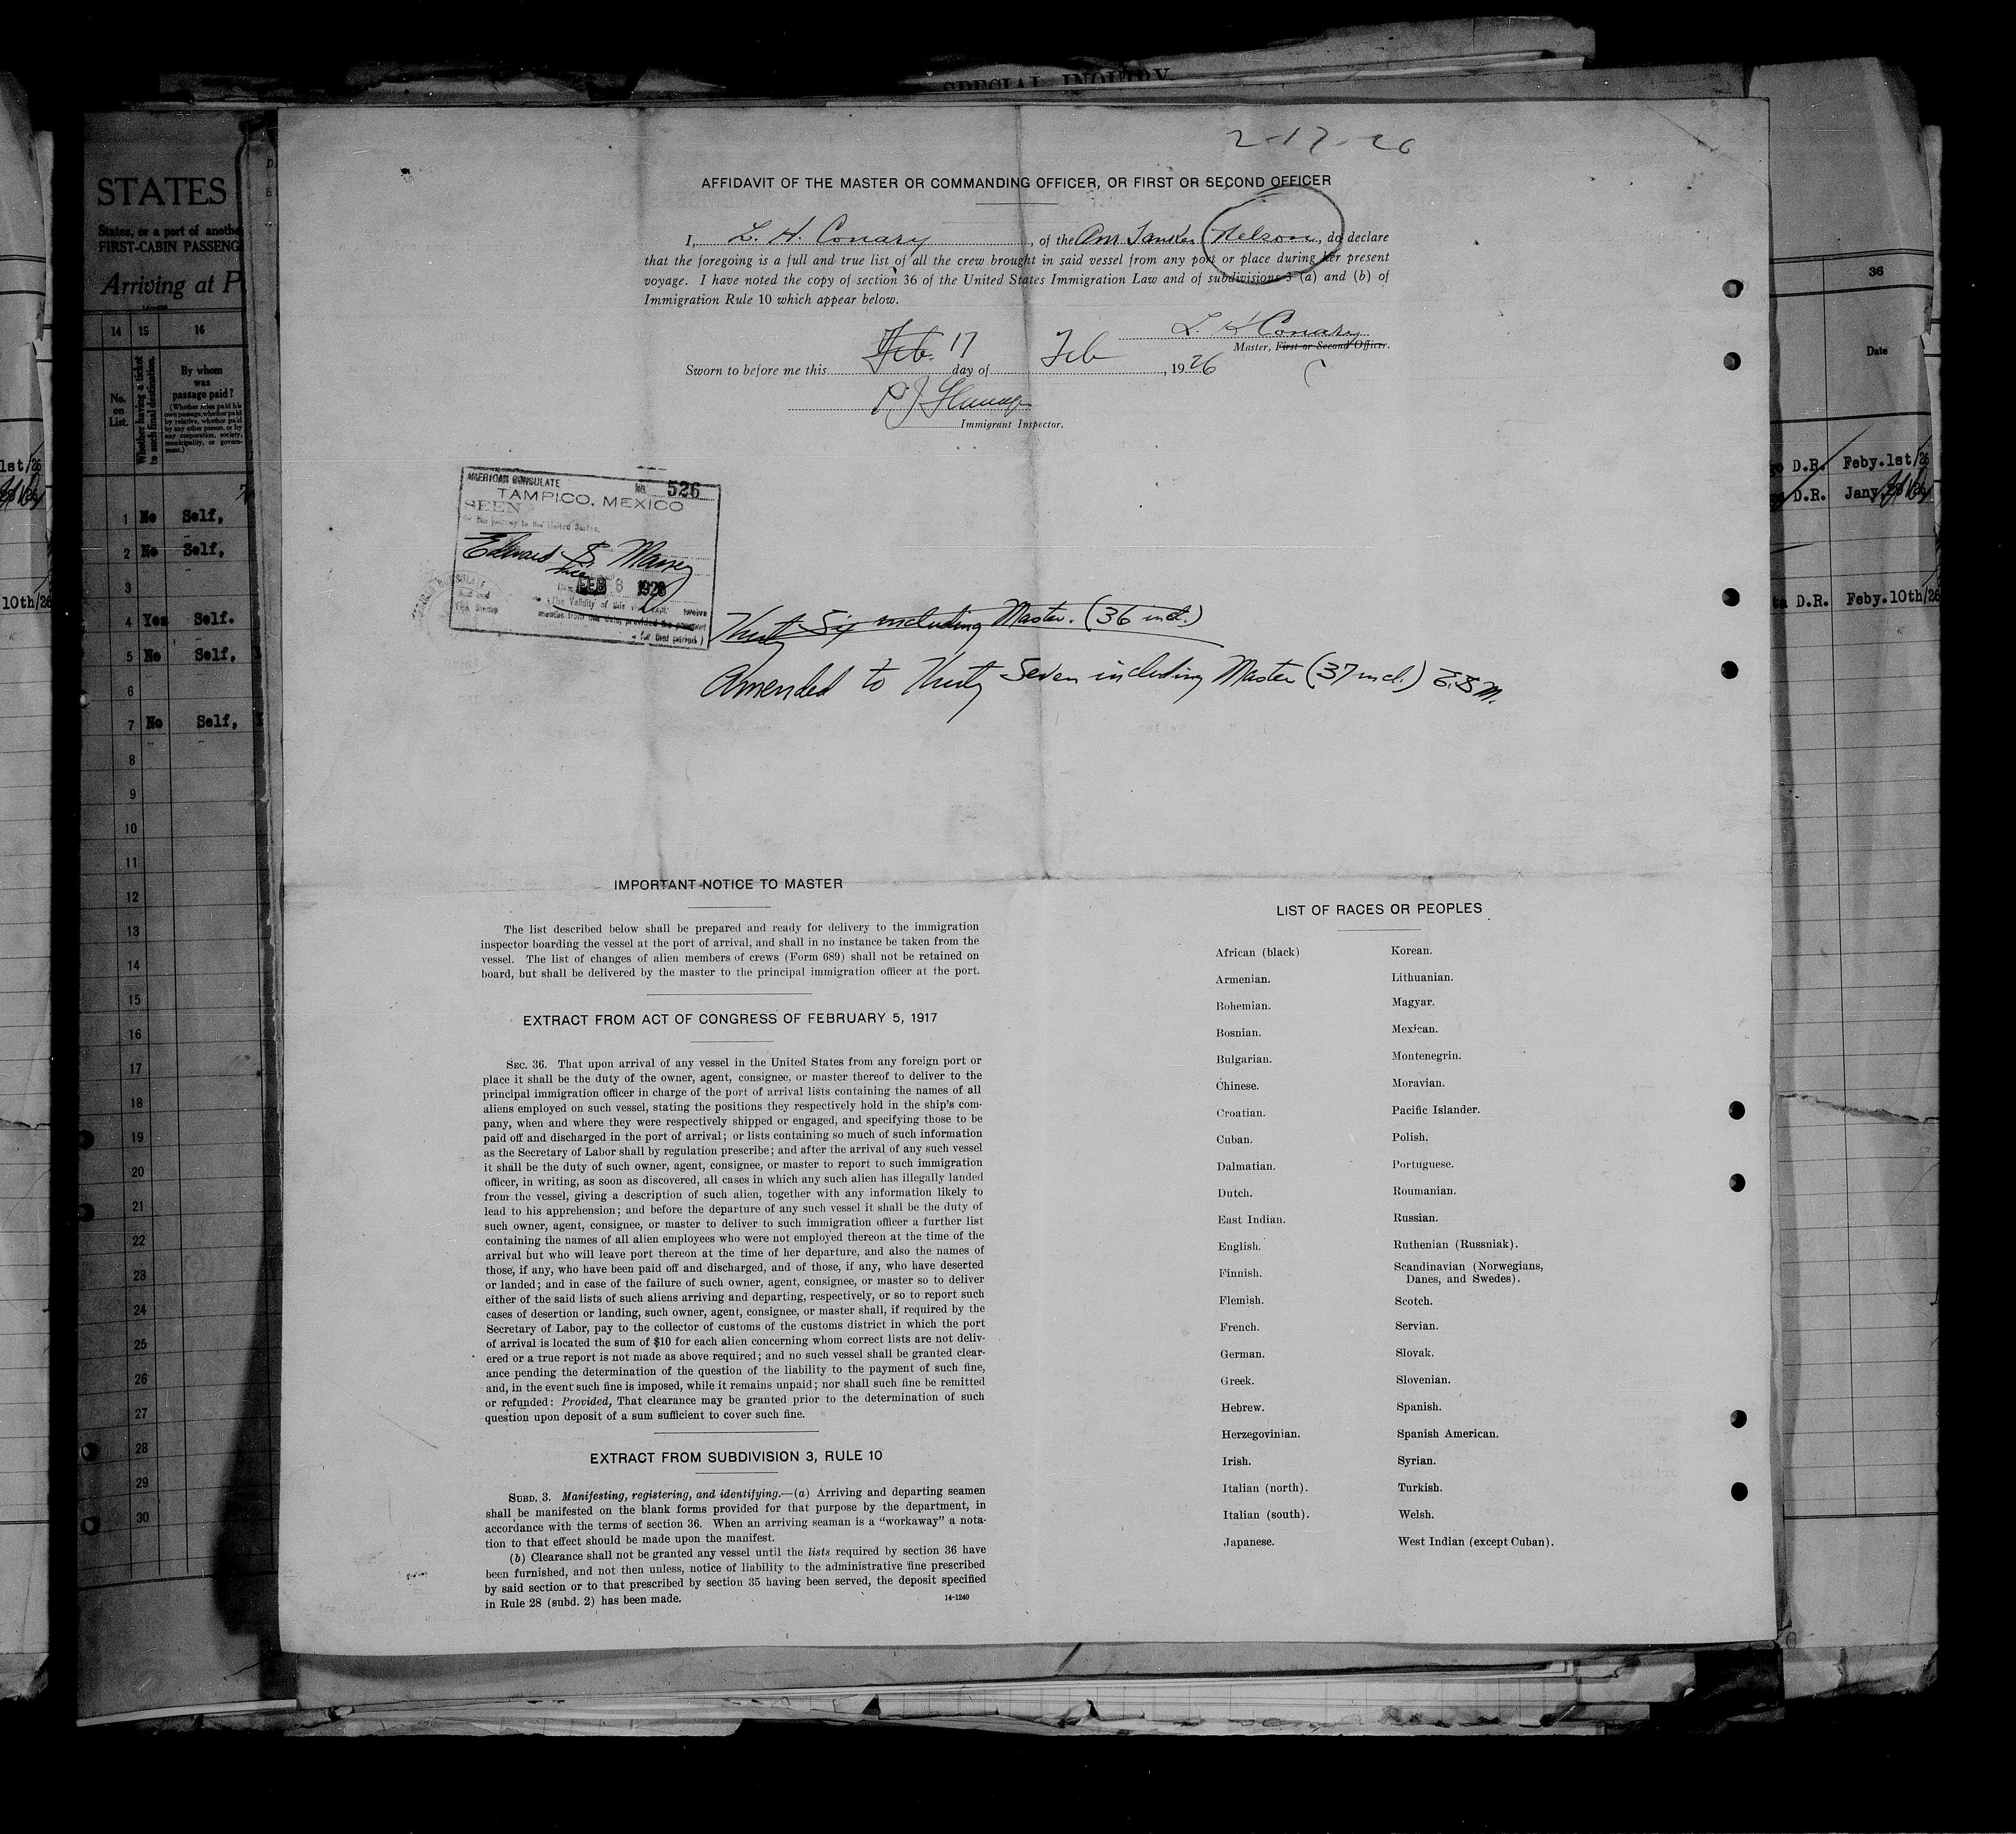 SPECIAL INQUIRY
STATES
States, or a port of anothe
FIRST-CABIN PASSENG
Arriving at P
14 15 16
No. on List.
Whether having a ticket to such final destination.
By whom was passage paid?
(Whether alien paid his own passage, whether paid by relative, whether paid by any other person, or by any corporation, society, municipality, or government.)
1st/26
10th/26
1 No Self,
2 No Self,
3
4 Yes Self.
5 No Self,
6
7 No Self,
8
9
10
11
12
13
14
15
16
17
18
19
20
21
22
23
24
25
26
27
28
29
30
2-17-26
AFFIDAVIT OF THE MASTER OR COMMANDING OFFICER, OR FIRST OR SECOND OFFICER
I, L. H. Conary, of the Am Tanker Nelson, do declare
that the foregoing is a full and true list of all the crew brought in said vessel from any port or place during her present
voyage. I have noted the copy of section 36 of the United States Immigration Law and of subdivisions 3 (a) and (b) of
Immigration Rule 10 which appear below.
L. H Conary
Master, First or Second Officer.
Sworn to before me this Feb. 17 day of Feb, 1926
P J
Immigrant Inspector.
AMERICAN CONSULATE No. 526
TAMPICO, MEXICO
SEEN
For the journey to the United States.
Edward S. Maney
Vice
FEB 8 1926
(The Validity of this visa twelve
months from this date, provided the passport
for that period.)
Thirty Six including Master. (36 incl.)
Amended to Thirty Seven including Master (37 incl.) E.S.M.
IMPORTANT NOTICE TO MASTER
The list described below shall be prepared and ready for delivery to the immigration
inspector boarding the vessel at the port of arrival, and shall in no instance be taken from the
vessel. The list of changes of alien members of crews (Form 689) shall not be retained on
board, but shall be delivered by the master to the principal immigration officer at the port.
EXTRACT FROM ACT OF CONGRESS OF FEBRUARY 5, 1917
SEC. 36. That upon arrival of any vessel in the United States from any foreign port or
place it shall be the duty of the owner, agent, consignee, or master thereof to deliver to the
principal immigration officer in charge of the port of arrival lists containing the names of all
aliens employed on such vessel, stating the positions they respectively hold in the ship's com-
pany, when and where they were respectively shipped or engaged, and specifying those to be
paid off and discharged in the port of arrival; or lists containing so much of such information
as the Secretary of Labor shall by regulation prescribe; and after the arrival of any such vessel
it shall be the duty of such owner, agent, consignee, or master to report to such immigration
officer, in writing, as soon as discovered, all cases in which any such alien has illegally landed
from the vessel, giving a description of such alien, together with any information likely to
lead to his apprehension; and before the departure of any such vessel it shall be the duty of
such owner, agent, consignee, or master to deliver to such immigration officer a further list
containing the names of all alien employees who were not employed thereon at the time of the
arrival but who will leave port thereon at the time of her departure, and also the names of
those, if any, who have been paid off and discharged, and of those, if any, who have deserted
or landed; and in case of the failure of such owner, agent, consignee, or master so to deliver
either of the said lists of such aliens arriving and departing, respectively, or so to report such
cases of desertion or landing, such owner, agent, consignee, or master shall, if required by the
Secretary of Labor, pay to the collector of customs of the customs district in which the port
of arrival is located the sum of $10 for each alien concerning whom correct lists are not deliv-
ered or a true report is not made as above required; and no such vessel shall be granted clear-
ance pending the determination of the question of the liability to the payment of such fine,
and, in the event such fine is imposed, while it remains unpaid; nor shall such fine be remitted
or refunded: Provided, That clearance may be granted prior to the determination of such
question upon deposit of a sum sufficient to cover such fine.
EXTRACT FROM SUBDIVISION 3, RULE 10
SUBD. 3. Manifesting, registering, and identifying.—(a) Arriving and departing seamen
shall be manifested on the blank forms provided for that purpose by the department, in
accordance with the terms of section 36. When an arriving seaman is a "workaway" a nota-
tion to that effect should be made upon the manifest.
(b) Clearance shall not be granted any vessel until the lists required by section 36 have
been furnished, and not then unless, notice of liability to the administrative fine prescribed
by said section or to that prescribed by section 35 having been served, the deposit specified
in Rule 28 (subd. 2) has been made.
14-1240
LIST OF RACES OR PEOPLES
African (black)
Armenian.
Bohemian.
Bosnian.
Bulgarian.
Chinese.
Croatian.
Cuban.
Dalmatian.
Dutch.
East Indian.
English.
Finnish.
Flemish.
French.
German.
Greek.
Hebrew.
Herzegovinian.
Irish.
Italian (north).
Italian (south).
Japanese.
Korean.
Lithuanian.
Magyar.
Mexican.
Montenegrin.
Moravian.
Pacific Islander.
Polish.
Portuguese.
Roumanian.
Russian.
Ruthenian (Russniak).
Scandinavian (Norwegians,
Danes, and Swedes).
Scotch.
Servian.
Slovak.
Slovenian.
Spanish.
Spanish American.
Syrian.
Turkish.
Welsh.
West Indian (except Cuban).
36
Date
D.R. Feby.1st/26
D.R. Jany.
D.R. Feby.10th/26